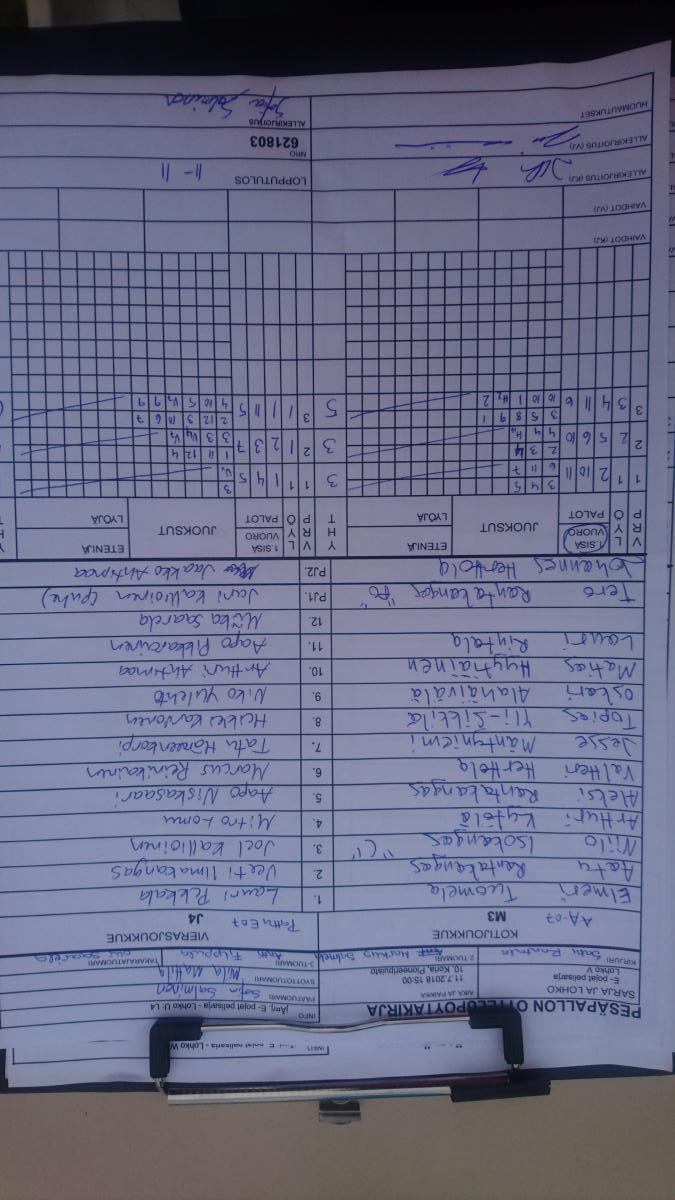 PESÄPALLON OTTELUPÖYTÄKIRJA
INFO
(Änj, E- pojat pelisarja - Lohko U: L4
SARJA JA LOHKO
E- pojat pelisarja
Lohko V
AIKA JA PAIKKA
11.7.2018 15:00
10, Koria, Pioneeripuisto
PÄÄTUOMARI
Sofia Salminen
SYÖTTÖTUOMARI
Mila Mattila
KIRJURI
Satu Rautmela
2-TUOMARI
Markus
3-TUOMARI
Antti Filppula
TAKARAJATUOMARI
Saarela
KOTIJOUKKUE
M3
AA-07
VIERASJOUKKUE
J4
PattU E07
Elmeri Tuomela 1. Lauri Pekkala
Aatu Rantakangas 2. Veeti Ilmakangas
Niilo Isokangas "C" 3. Joel Kallioinen
Artturi Kytölä 4. Mitro Lomu
Aleksi Rantakangas 5. Aapo Niskasaari
Valtteri Herttola 6. Marcus Reinikainen
Jesse Mäntyniemi 7. Tatu Hämeenkorpi
Topias Yli-Sikkilä 8. Heikki Karvonen
Oskari Alahäivälä 9. Niko Yulehto
Matias Hyytiäinen 10. Artturi Ahtimaa
Lauri Rintala 11. Aapo Pikkarainen
12. Miika Saarela
Tero Rantakangas "PJ" PJ1. Jani Kallioinen (puhe)
Johannes Herttola PJ2. Jaakko Ahtimaa
1.SISÄ VUORO PALOT JUOKSUT ETENIJÄ LYÖJÄ YHT VPR LYÖ 1.SISÄ VUORO PALOT JUOKSUT ETENIJÄ LYÖJÄ
1 1 2 10 11 3 4 5 6 11 7 3 1 1 1 4 5 3
2 2 5 6 10 2 3 4 4 4 3 2 1 2 3 7 1 11 12 4 3 3
3 3 4 11 6 3 5 8 9 1 10 10 1 2 5 3 1 1 11 5 2 12 3 10 6 7 4 10 5 9 9
VAIHDOT (KJ)
VAIHDOT (VJ)
ALLEKIRJOITUS (KJ)
ALLEKIRJOITUS (VJ)
HUOMAUTUKSET
LOPPUTULOS
11-11
NRO
621803
ALLEKIRJOITUS
Sofia Salminen